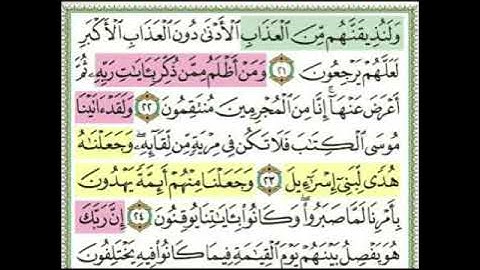 وَلَنُذِيقَنَّهُم مِّنَ ٱلْعَذَابِ ٱلْأَدْنَىٰ دُونَ ٱلْعَذَابِ ٱلْأَكْبَرِ
لَعَلَّهُمْ يَرْجِعُونَ ٢١ وَمَنْ أَظْلَمُ مِمَّن ذُكِّرَ بِـَٔايَـٰتِ رَبِّهِۦ ثُمَّ
أَعْرَضَ عَنْهَآ ۚ إِنَّا مِنَ ٱلْمُجْرِمِينَ مُنتَقِمُونَ ٢٢ وَلَقَدْ ءَاتَيْنَا
مُوسَى ٱلْكِتَـٰبَ فَلَا تَكُن فِى مِرْيَةٍ مِّن لِّقَآئِهِۦ ۖ وَجَعَلْنَـٰهُ
هُدًى لِّبَنِىٓ إِسْرَٰٓءِيلَ ٢٣ وَجَعَلْنَا مِنْهُمْ أَئِمَّةً يَهْدُونَ
بِأَمْرِنَا لَمَّا صَبَرُوا۟ ۖ وَكَانُوا۟ بِـَٔايَـٰتِنَا يُوقِنُونَ ٢٤ إِنَّ رَبَّكَ
هُوَ يَفْصِلُ بَيْنَهُمْ يَوْمَ ٱلْقِيَـٰمَةِ فِيمَا كَانُوا۟ فِيهِ يَخْتَلِفُونَ